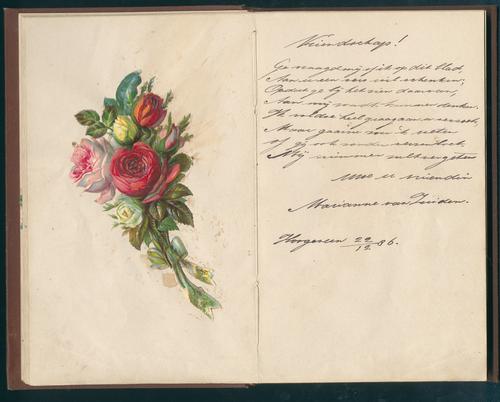 Vriendschap!
Ge vraagd mij of ik op dit blad,
Aan u een vers wil schenken;
Opdat ge bij het zien daarvan,
Aan mij zoudt kunnen denken.
Ik voldoe heel graag aan u verzoek,
Maar gaarne zou ik weten
of gij ook zonder
Mij nimmer zult vergeten
Uwe u vriendin
Marianne van
Hoogeveen 22/12 86.